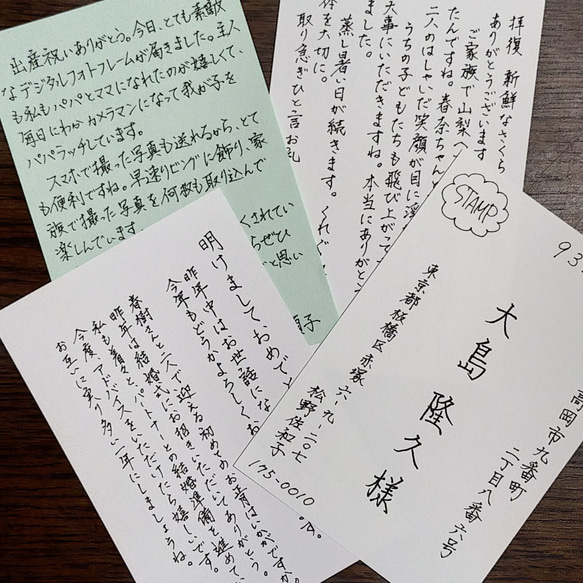 出産祝いありがとう。今日、とても素敵
なデジタルフォトフレームが届きました。主人
も私もパパとママになれたのが嬉しくて、
毎日にわかカメラマンになって我が子を
パパラッチしています。
スマホで撮った写真も送れるから、とて
も便利ですね。早速リビングに飾り、家
族で撮った写真を何枚も取り込んで
楽しんでいます。
くされてい
らぜひ
と思い
子
拝復 新鮮なさくら
ありがとうございます
ご家族で山梨へ
たんですね。春奈ちゃんと
二人のはしゃいだ笑顔が目に浮
うちの子どもたちも飛び上がって
大事にいただきますね。本当にありがと
ました。
蒸し暑い日が続きます。くれぐれ
体を大切に。
取り急ぎひと言お礼
明けましておめで
昨年中はお世話にな
今年もどうかよろしくお
春樹さんと二人で迎える初めてのお正月はいかがですか。
昨年は結婚式にお招きいただいてありがとう。
私も着々とパートナーとの結婚準備を進めて
今度、アドバイスをいただけたら嬉しいです。
お互いに実り多い一年にしましょうね。
STAMP
93
高岡市九番町
二丁目八番六号
大島 隆久様
東京都板橋区赤塚 六-九-二〇七
松野佐和子
175-0010